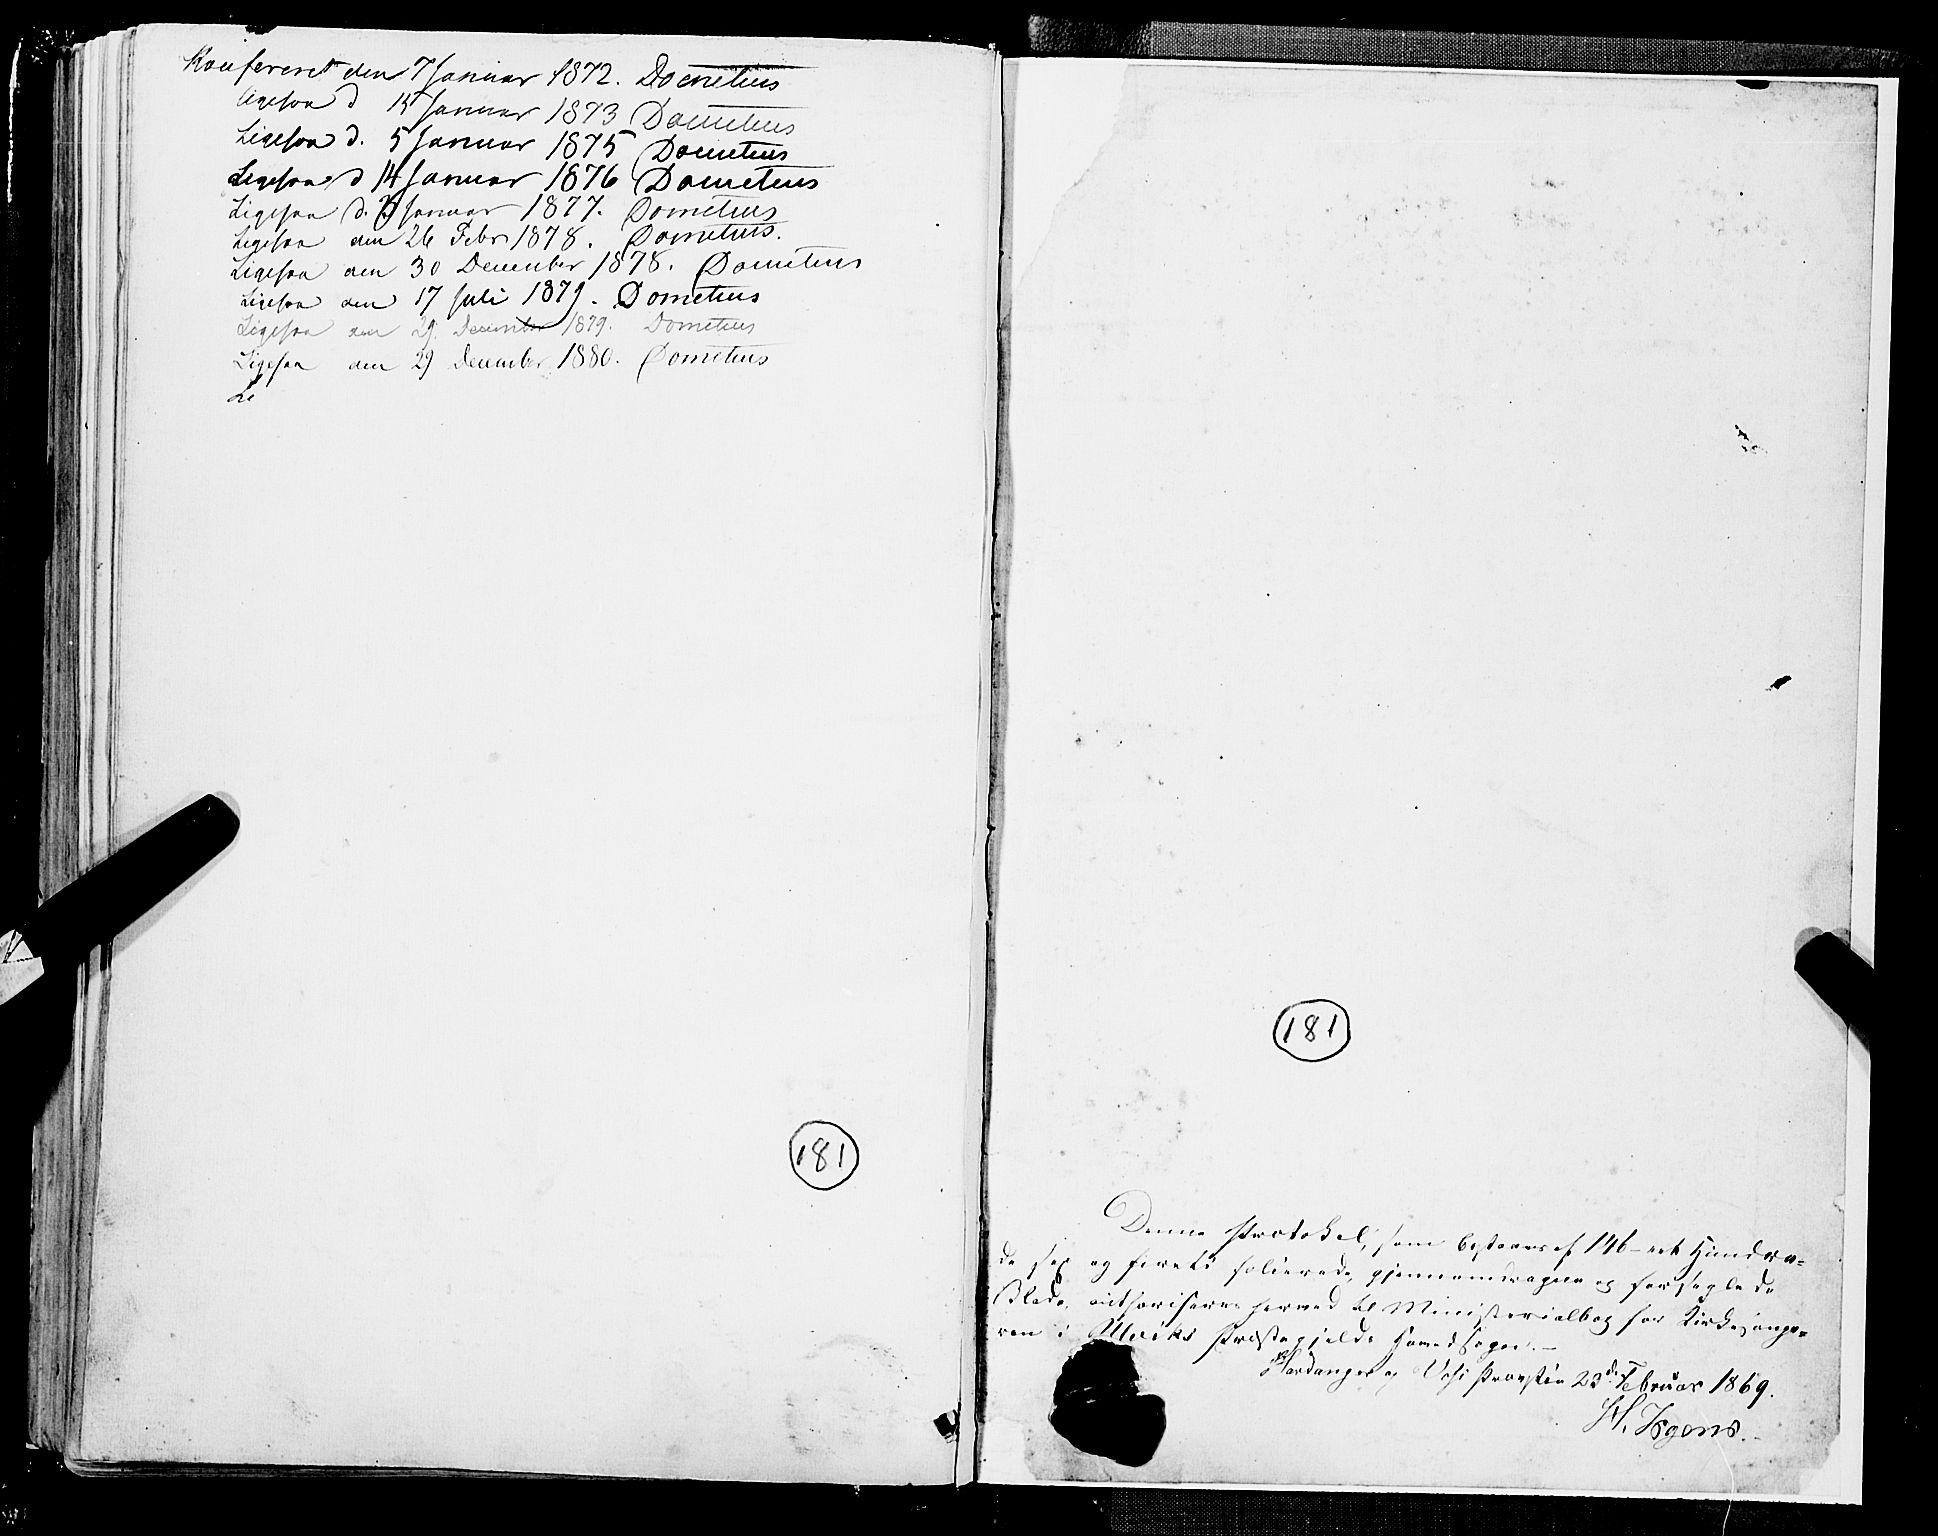 Konfereret den 7 Januar 1872. Dometius
Ligesaa d 15 Januar 1873 Dometius
Ligesaa d. 5 Januar 1875 Dometius
Ligesaa d 14 Januar 1876 Dometius
Ligesaa d. Januar 1877. Dometius
Ligesaa den 26 Febr 1878. Dometius.
Ligesaa den 30 December 1878. Dometius
Ligesaa den 17 Juli 1879. Dometius
Ligesaa den 29 December 1879. Dometius
Ligesaa den 29 December 1880. Dometius
Li
181
181
Denne Protokol, som bestaaer af 146 - eet Hundre-
de sex og førreti folierede, gjennemdragne og forseglede
Blade, authoriseres herved til Ministerialbog for Kirkesange-
ren i Præstegjelds Hovedsogn. -
Hardanger og Vos Provsti 23de Februar 1869.
H. Irgens.